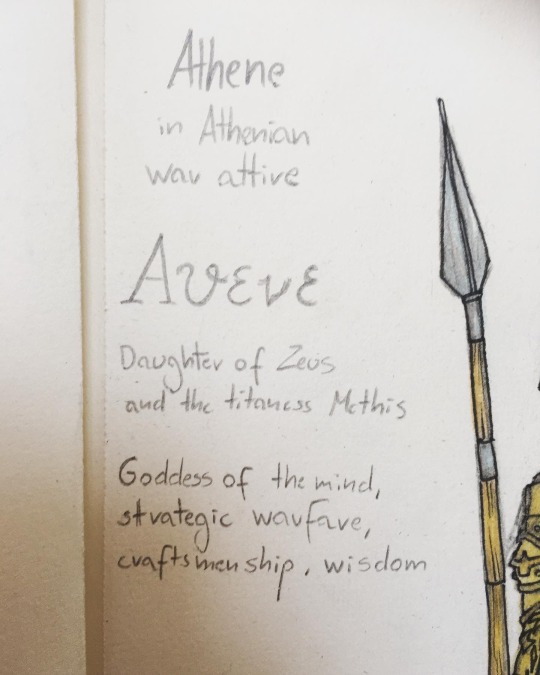 Athene
in Athenian
war attire
Αϑενε
Daughter of Zeus
and the titaness Methis
Goddess of the mind,
strategic warfare,
craftsmenship, wisdom